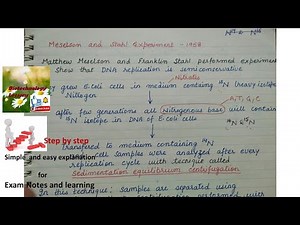 Meselson and Stahl Experiment - 1958
N14 & N15
Matthew Meselson and Franklin Stahl performed experiment
show that DNA replication is semiconservative
Nitrally
grew E.coli cells in medium containing 15N (heavy isotope
Nitrogen
A,T,G,C
after few generations all Nitrogenous base will contain
15N isotope in DNA of E.coli cells
Transferred to medium containing 14N
cells samples were analyzed after every
replication cycle with technique called
sedimentation equilibrium centrifugation
In this technique: samples are separated using
Biotechnology
Step by step
Simple and easy explanation
for
Exam Notes and learning